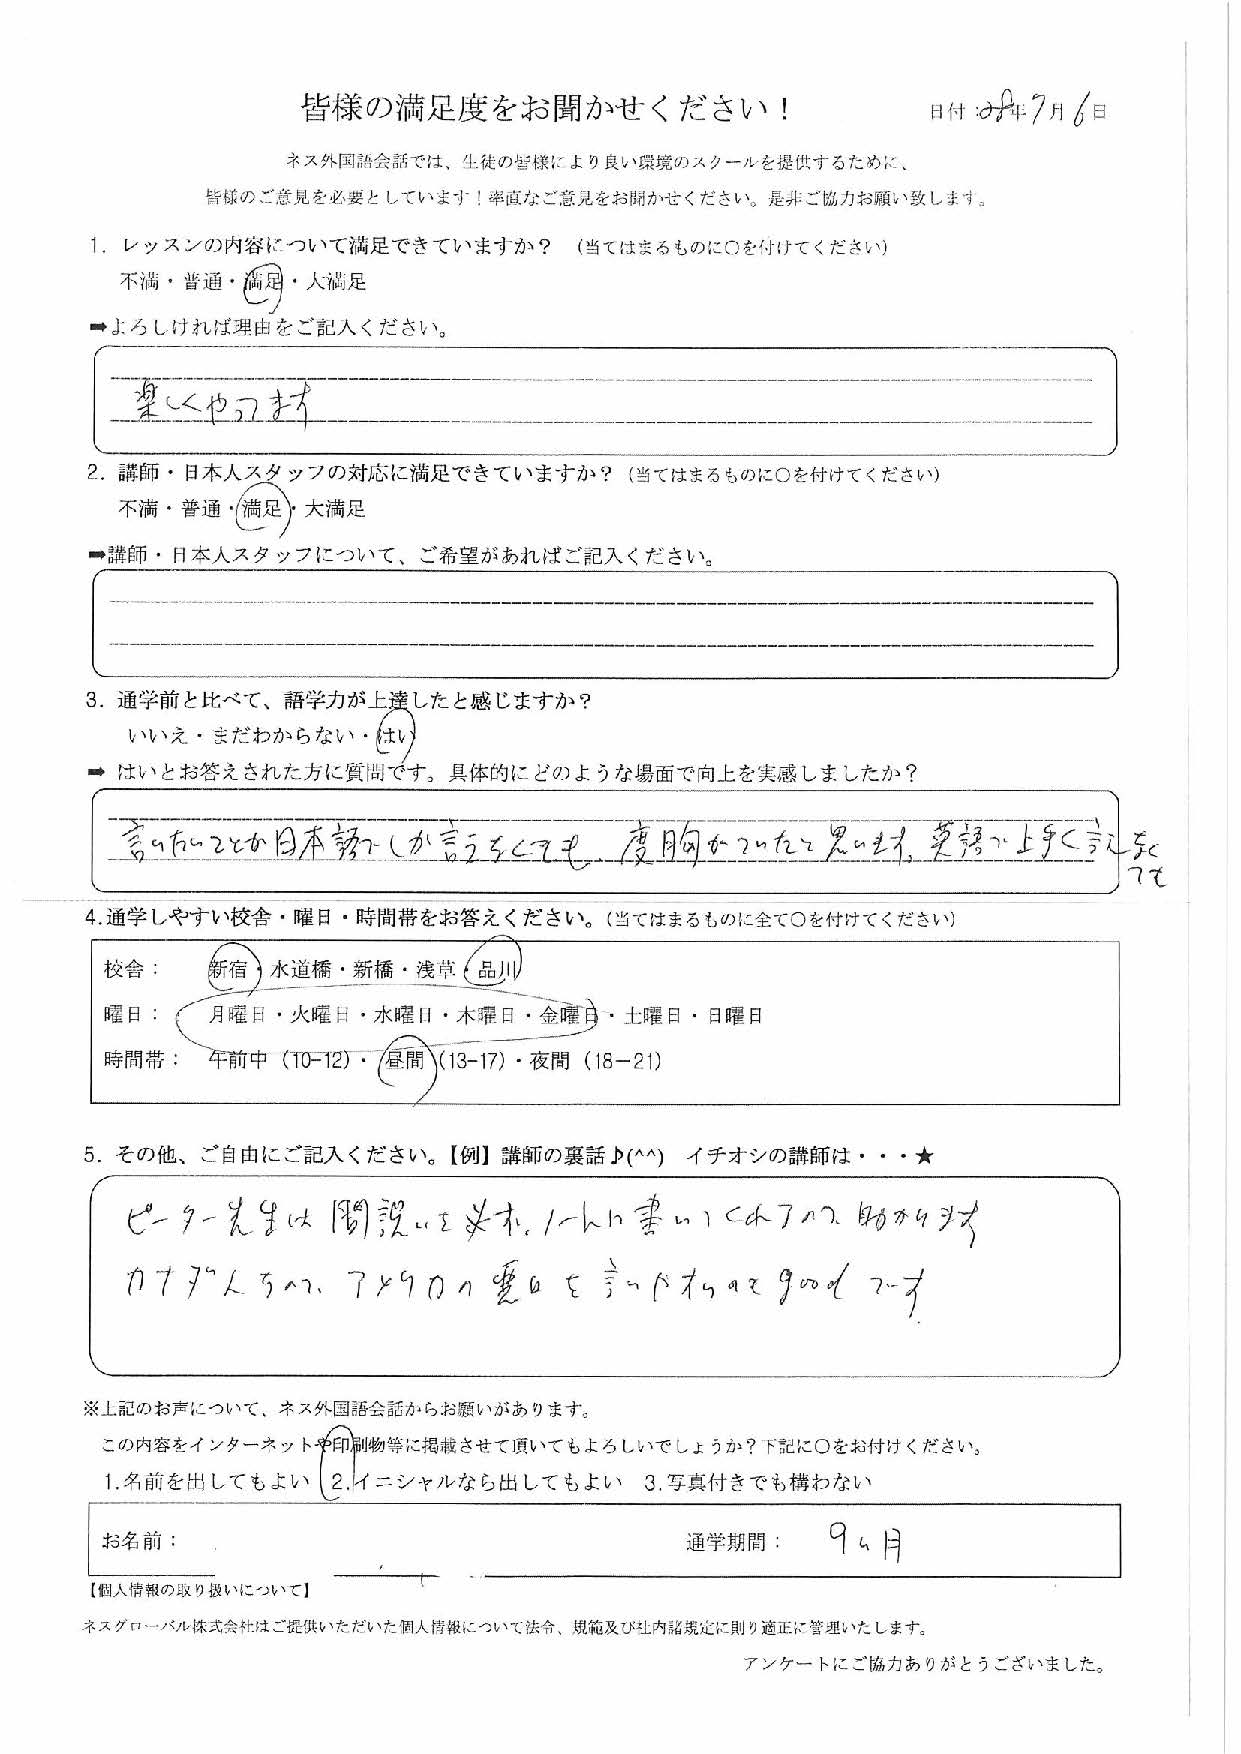 皆様の満足度をお聞かせください！
日付：28年7月6日
ネス外国語会話では、生徒の皆様により良い環境のスクールを提供するために、
皆様のご意見を必要としています！率直なご意見をお聞かせください。是非ご協力お願い致します。
1. レッスンの内容について満足できていますか？ （当てはまるものに〇を付けてください）
不満・普通・満足・大満足
➡よろしければ理由をご記入ください。
楽しくやってます
2. 講師・日本人スタッフの対応に満足できていますか？（当てはまるものに〇を付けてください）
不満・普通・満足・大満足
➡講師・日本人スタッフについて、ご希望があればご記入ください。
3. 通学前と比べて、語学力が上達したと感じますか？
いいえ・まだわからない・はい
➡ はいとお答えされた方に質問です。具体的にどのような場面で向上を実感しましたか？
言いたいことが日本語でしか言えなくても、度胸がついたと思います。英語で上手く言えなく
ても
4.通学しやすい校舎・曜日・時間帯をお答えください。（当てはまるものに全て〇を付けてください）
校舎： 新宿・水道橋・新橋・浅草・品川
曜日： 月曜日・火曜日・水曜日・木曜日・金曜日・土曜日・日曜日
時間帯： 午前中（10-12）・昼間（13-17）・夜間（18－21）
5. その他、ご自由にご記入ください。【例】講師の裏話♪(^^) イチオシの講師は・・・★
ピーター先生は間違いを必ず、ノートに書いてくれるので助かります
カナダ人なので、アメリカの悪口を言いやすいのもgoodです.
※上記のお声について、ネス外国語会話からお願いがあります。
この内容をインターネットや印刷物等に掲載させて頂いてもよろしいでしょうか？下記に〇をお付けください。
1.名前を出してもよい 2.イニシャルなら出してもよい 3.写真付きでも構わない
お名前： 通学期間： 9ヶ月
【個人情報の取り扱いについて】
ネスグローバル株式会社はご提供いただいた個人情報について法令、規範及び社内諸規定に則り適正に管理いたします。
アンケートにご協力ありがとうございました。